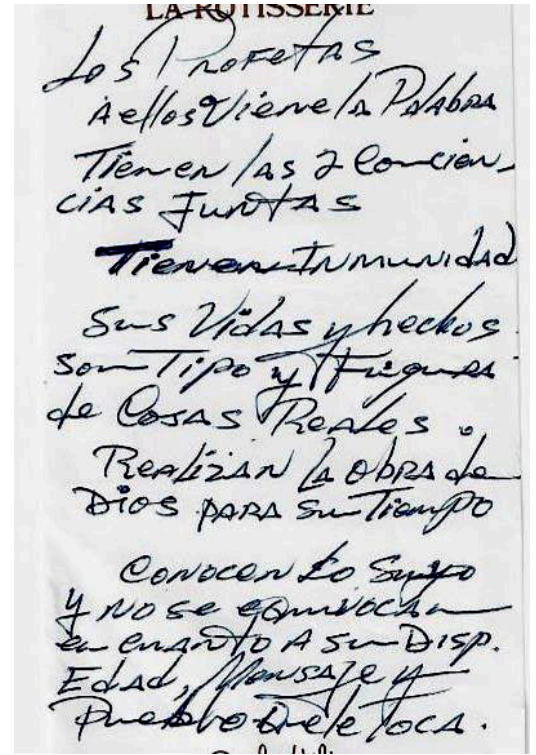 LA ROTISSERIE
Los Profetas
A ellos Viene la Palabra
Tienen las 2 Concien-
cias Juntas
Tienen Inmunidad
Sus Vidas y hechos
son Tipo y Figura
de Cosas Reales.
Realizan la obra de
Dios para su Tiempo
Conocen lo Suyo
y no se equivocan
en cuanto a su Disp.
Edad, Mensaje y
Pueblo que le Toca.